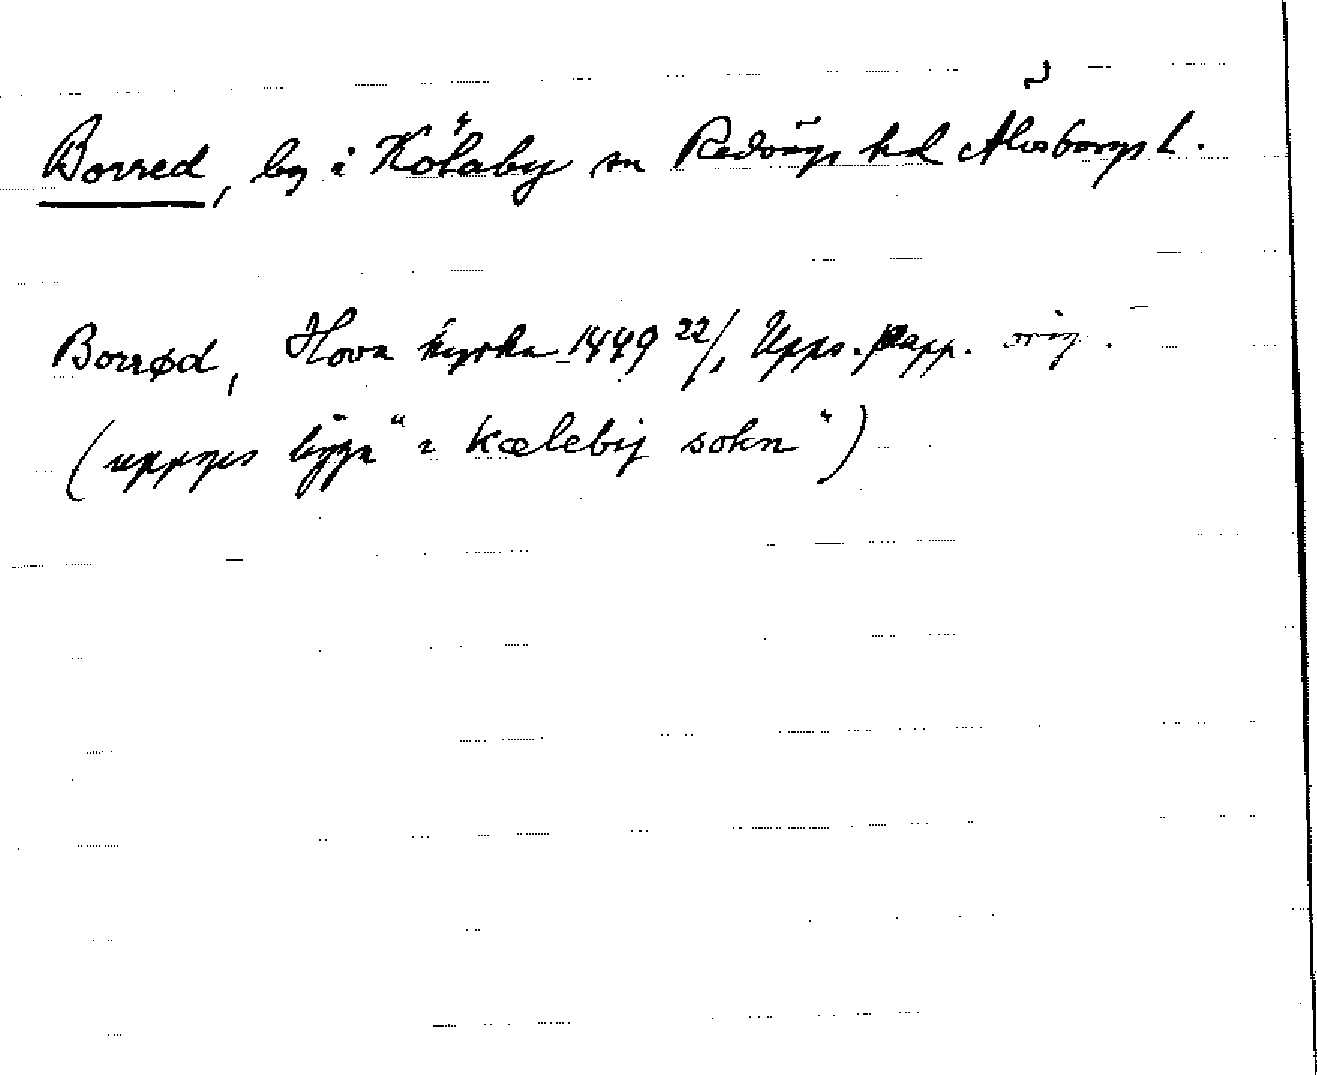 Borred, by i Kölaby sn Redvägs hd Älvsborgs l.
Borrød, Hova kyrka 1449 22/1, Upps. papp. orig.
(uppges ligga "i Kælebij sokn")